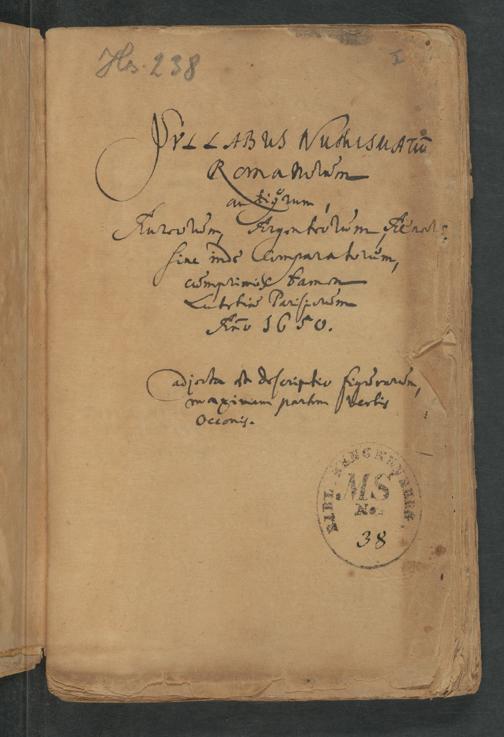 Hs. 238
I
SYLLABUS NUMISMATŪ
Romanorum
antiq̃orum,
Aureorum, Argenteorum, Aereor:
hinc inde Comparatorum,
cumprimis tamen
Lutetiae Parisiorum
Año 1650.
adjecta est descriptio figurarum,
maximam partem verbis
Occonis.
BIBL.
MS
No.
38